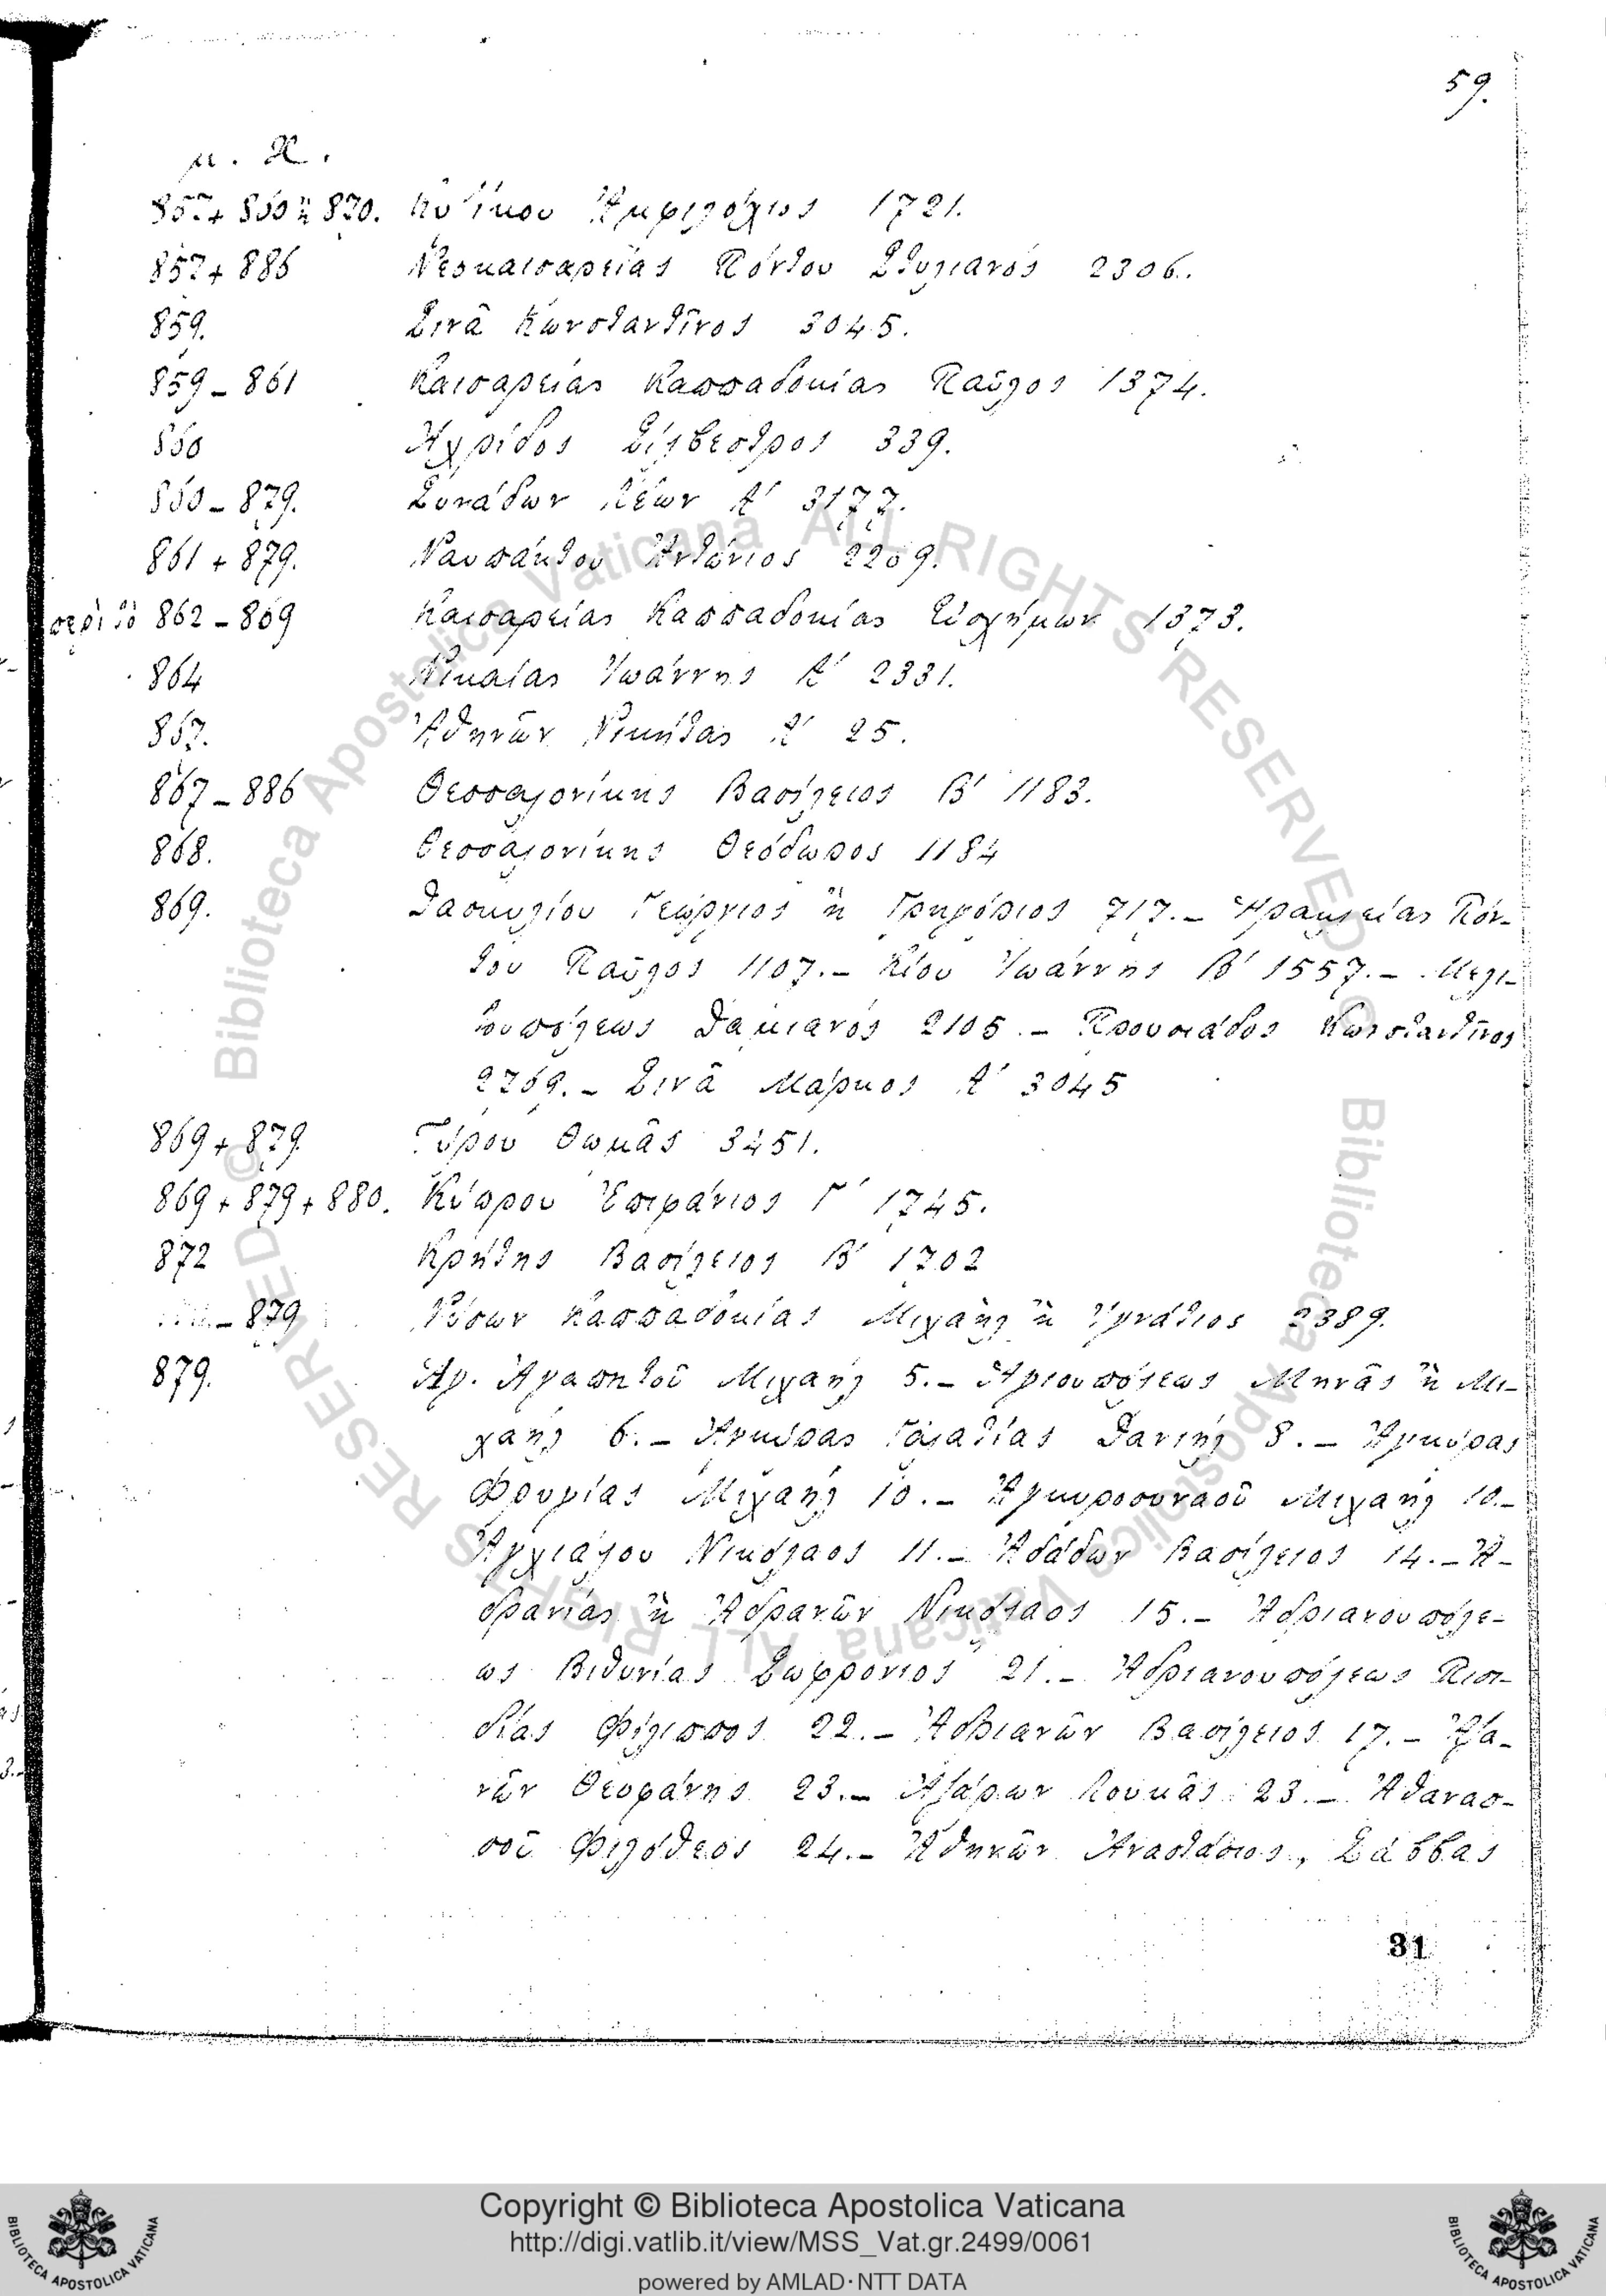 59.
μ. Χ.
857 + 860 ἢ 870. Κυζίκου Ἀμφιλόχιος 1721.
857 + 886 Νεοκαισαρείας Πόντου Στυλιανός 2306.
859. Σινᾶ Κωνσταντῖνος 3045.
859 - 861 Καισαρείας Καππαδοκίας Παῦλος 1374.
860 Ἀχρίδος Σίλβεστρος 339.
860 - 879. Συνάδων Λέων Α' 3177.
861 + 879. Ναυπάκτου Ἀντώνιος 2209.
περὶ τὸ 862 - 869 Καισαρείας Καππαδοκίας Εὐσχήμων 1373.
864 Νικαίας Ἰωάννης Α' 2331.
867. Ἀθηνῶν Νικήτας Α' 25.
867 - 886 Θεσσαλονίκης Βασίλειος Β' 1183.
868. Θεσσαλονίκης Θεόδωρος 1184
869. Δασκυλίου Γεώργιος ἢ Γρηγόριος 717. - Ἡρακλείας Πόν-
του Παῦλος 1107. - Κίου Ἰωάννης Β' 1557. - Μελι-
τουπόλεως Δαμιανός 2105. - Προυσιάδος Κωνσταντῖνος
2769. - Σινᾶ Μάρκος Α' 3045
869 + 879. Τύρου Θωμᾶς 3451.
869 + 879 + 880. Κύπρου Ἐπιφάνιος Γ' 1745.
872 Κρήτης Βασίλειος Β' 1702
- 879 Νύσων Καππαδοκίας Μιχαὴλ ἢ Ἰγνάτιος 2389.
879. Ἁγ. Ἀγαπητοῦ Μιχαήλ 5. - Ἁγιουπόλεως Μηνᾶς ἢ Μι-
χαήλ 6. - Ἀγκύρας Γαλατίας Δανιήλ 8. - Ἀγκύρας
Φρυγίας Μιχαήλ 10. - Ἀγκυροσυναοῦ Μιχαήλ 10. -
Ἀγχιάλου Νικόλαος 11. - Ἀδάδων Βασίλειος 14. - Ἀ-
δρανίας ἢ Ἀδρανῶν Νικόλαος 15. - Ἀδριανουπόλε-
ως Βιθυνίας Σωφρόνιος 21. - Ἀδριανουπόλεως Πισι-
δίας Φίλιππος 22. - Ἀδριανῶν Βασίλειος 17. - Ἀζα-
νῶν Θεοφάνης 23. - Ἀζάρων Λουκᾶς 23. - Ἀθανασ-
σοῦ Φιλόθεος 24. - Ἀθηνῶν Ἀναστάσιος, Σάββας
31
© Biblioteca Apostolica Vaticana ALL RIGHTS RESERVED © Biblioteca Apostolica Vaticana ALL RIGHTS RESERVED
Copyright © Biblioteca Apostolica Vaticana
http://digi.vatlib.it/view/MSS_Vat.gr.2499/0061
powered by AMLAD·NTT DATA
BIBLIOTECA APOSTOLICA VATICANA
BIBLIOTECA APOSTOLICA VATICANA